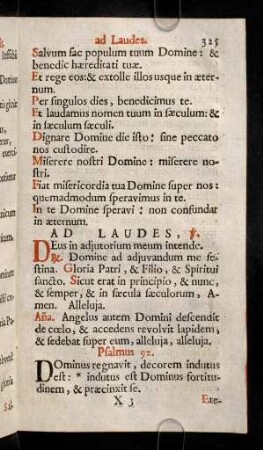 ad Laudes. 325
Salvum fac populum tuum Domine: &
benedic hæreditati tuæ.
Et rege eos:& extolle illos usque in æter-
num.
Per singulos dies, benedicimus te.
Et laudamus nomen tuum in sæculum: &
in sæculum sæculi.
Dignare Domine die isto: sine peccato
nos custodire.
Miserere nostri Domine: miserere no-
stri.
Fiat misericordia tua Domine super nos:
quemadmodum speravimus in te.
In te Domine speravi: non confundar
in æternum.
AD LAUDES, ℣.
Deus in adjutorium meum intende.
℟. Domine ad adjuvandum me fe-
stina. Gloria Patri, & Filio, & Spiritui
sancto. Sicut erat in principio, & nunc,
& semper, & in sæcula sæculorum, A-
men. Alleluja.
Aña. Angelus autem Domini descendit
de cœlo, & accedens revolvit lapidem,
& sedebat super eum, alleluja, alleluja.
Psalmus 92.
Dominus regnavit, decorem indutus
est: * indutus est Dominus fortitu-
dinem, & præcinxit se.
X 3 Ete-